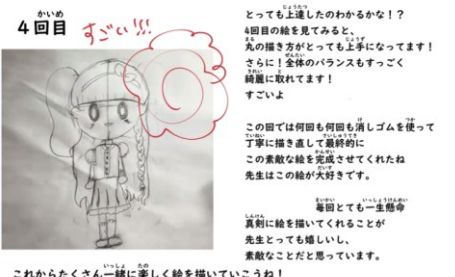 4回目
すごい!!!
とっても上達したのわかるかな！？
4回目の絵を見てみると、
丸の描き方がとっても上手になってます！
さらに！全体のバランスもすっごく
綺麗に取れてます！
すごいよ
この回では何回も何回も消しゴムを使って
丁寧に描き直して最終的に
この素敵な絵を完成させてくれたね
先生はこの絵が大好きです。
毎回とても一生懸命
真剣に絵を描いてくれることが
先生とっても嬉しいし、
素敵なことだと思っています。
これからたくさん一緒に楽しく絵を描いていこうね！